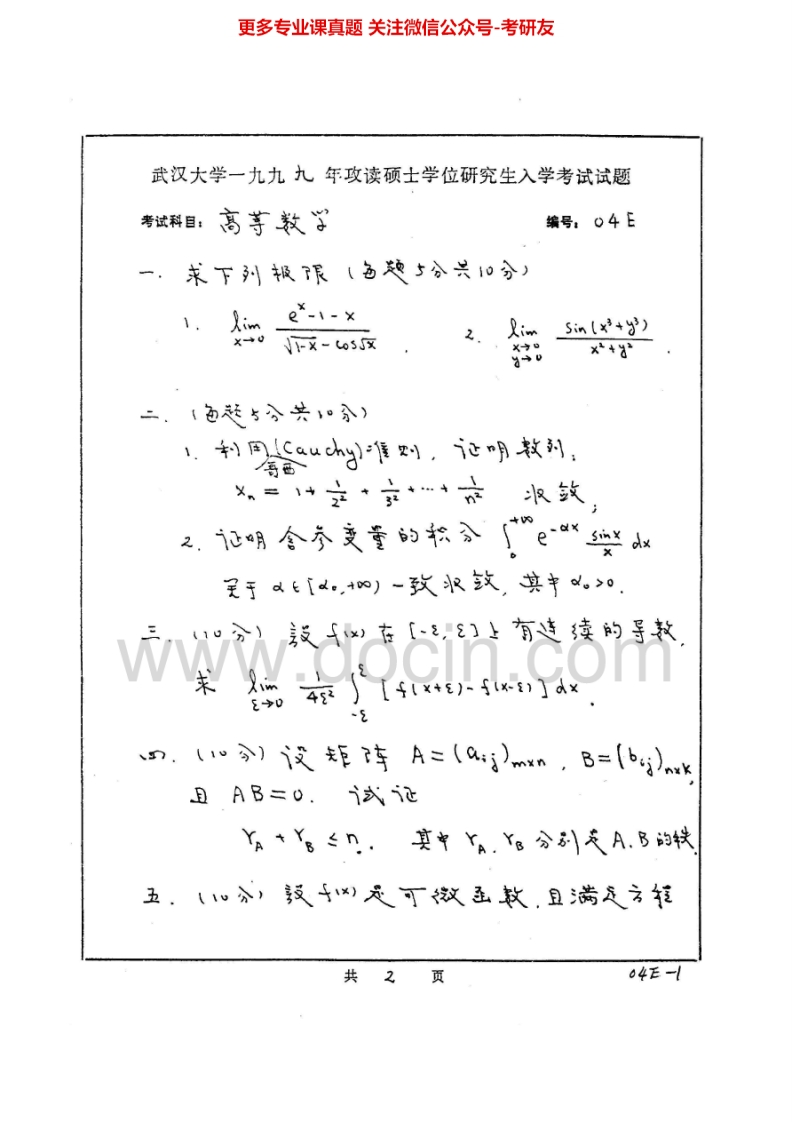 更多专业课真题 关注微信公众号-考研友
武汉大学一九九九年攻读硕士学位研究生入学考试试题
考试科目：高等数学 编号：04E
一. 求下列极限（每题5分共10分）
1. lim x→0 (e^x-1-x)/(√(1-x) - cos√x) . 2. lim x→0 y→0 sin(x³+y³)/(x²+y²) .
二.（每题5分共10分）
1. 利用(Cauchy)准则，证明数列：
哥西
x_n = 1+ 1/2² + 1/3² +…+ 1/n² 收敛；
2. 证明含参变量的积分 ∫_0^{+∞} e^{-αx} sinx/x dx
关于 α∈[α₀,+∞) 一致收敛，其中 α₀>0.
三.（10分）設 f(x) 在 [-ε,ε] 上有连续的导数，
求 lim ε→0 1/4ε² ∫_{-ε}^{ε} [f(x+ε)-f(x-ε)]dx .
www.docin.com
四.（10分）设矩阵 A=(a_ij)_{m×n}，B=(b_ij)_{n×k}，
且 AB=0. 试证
r_A + r_B ≤ n. 其中 r_A, r_B 分别是A.B的秩
五.（10分）設 f(x) 是可微函数，且满足方程
共 2 页 04E-1